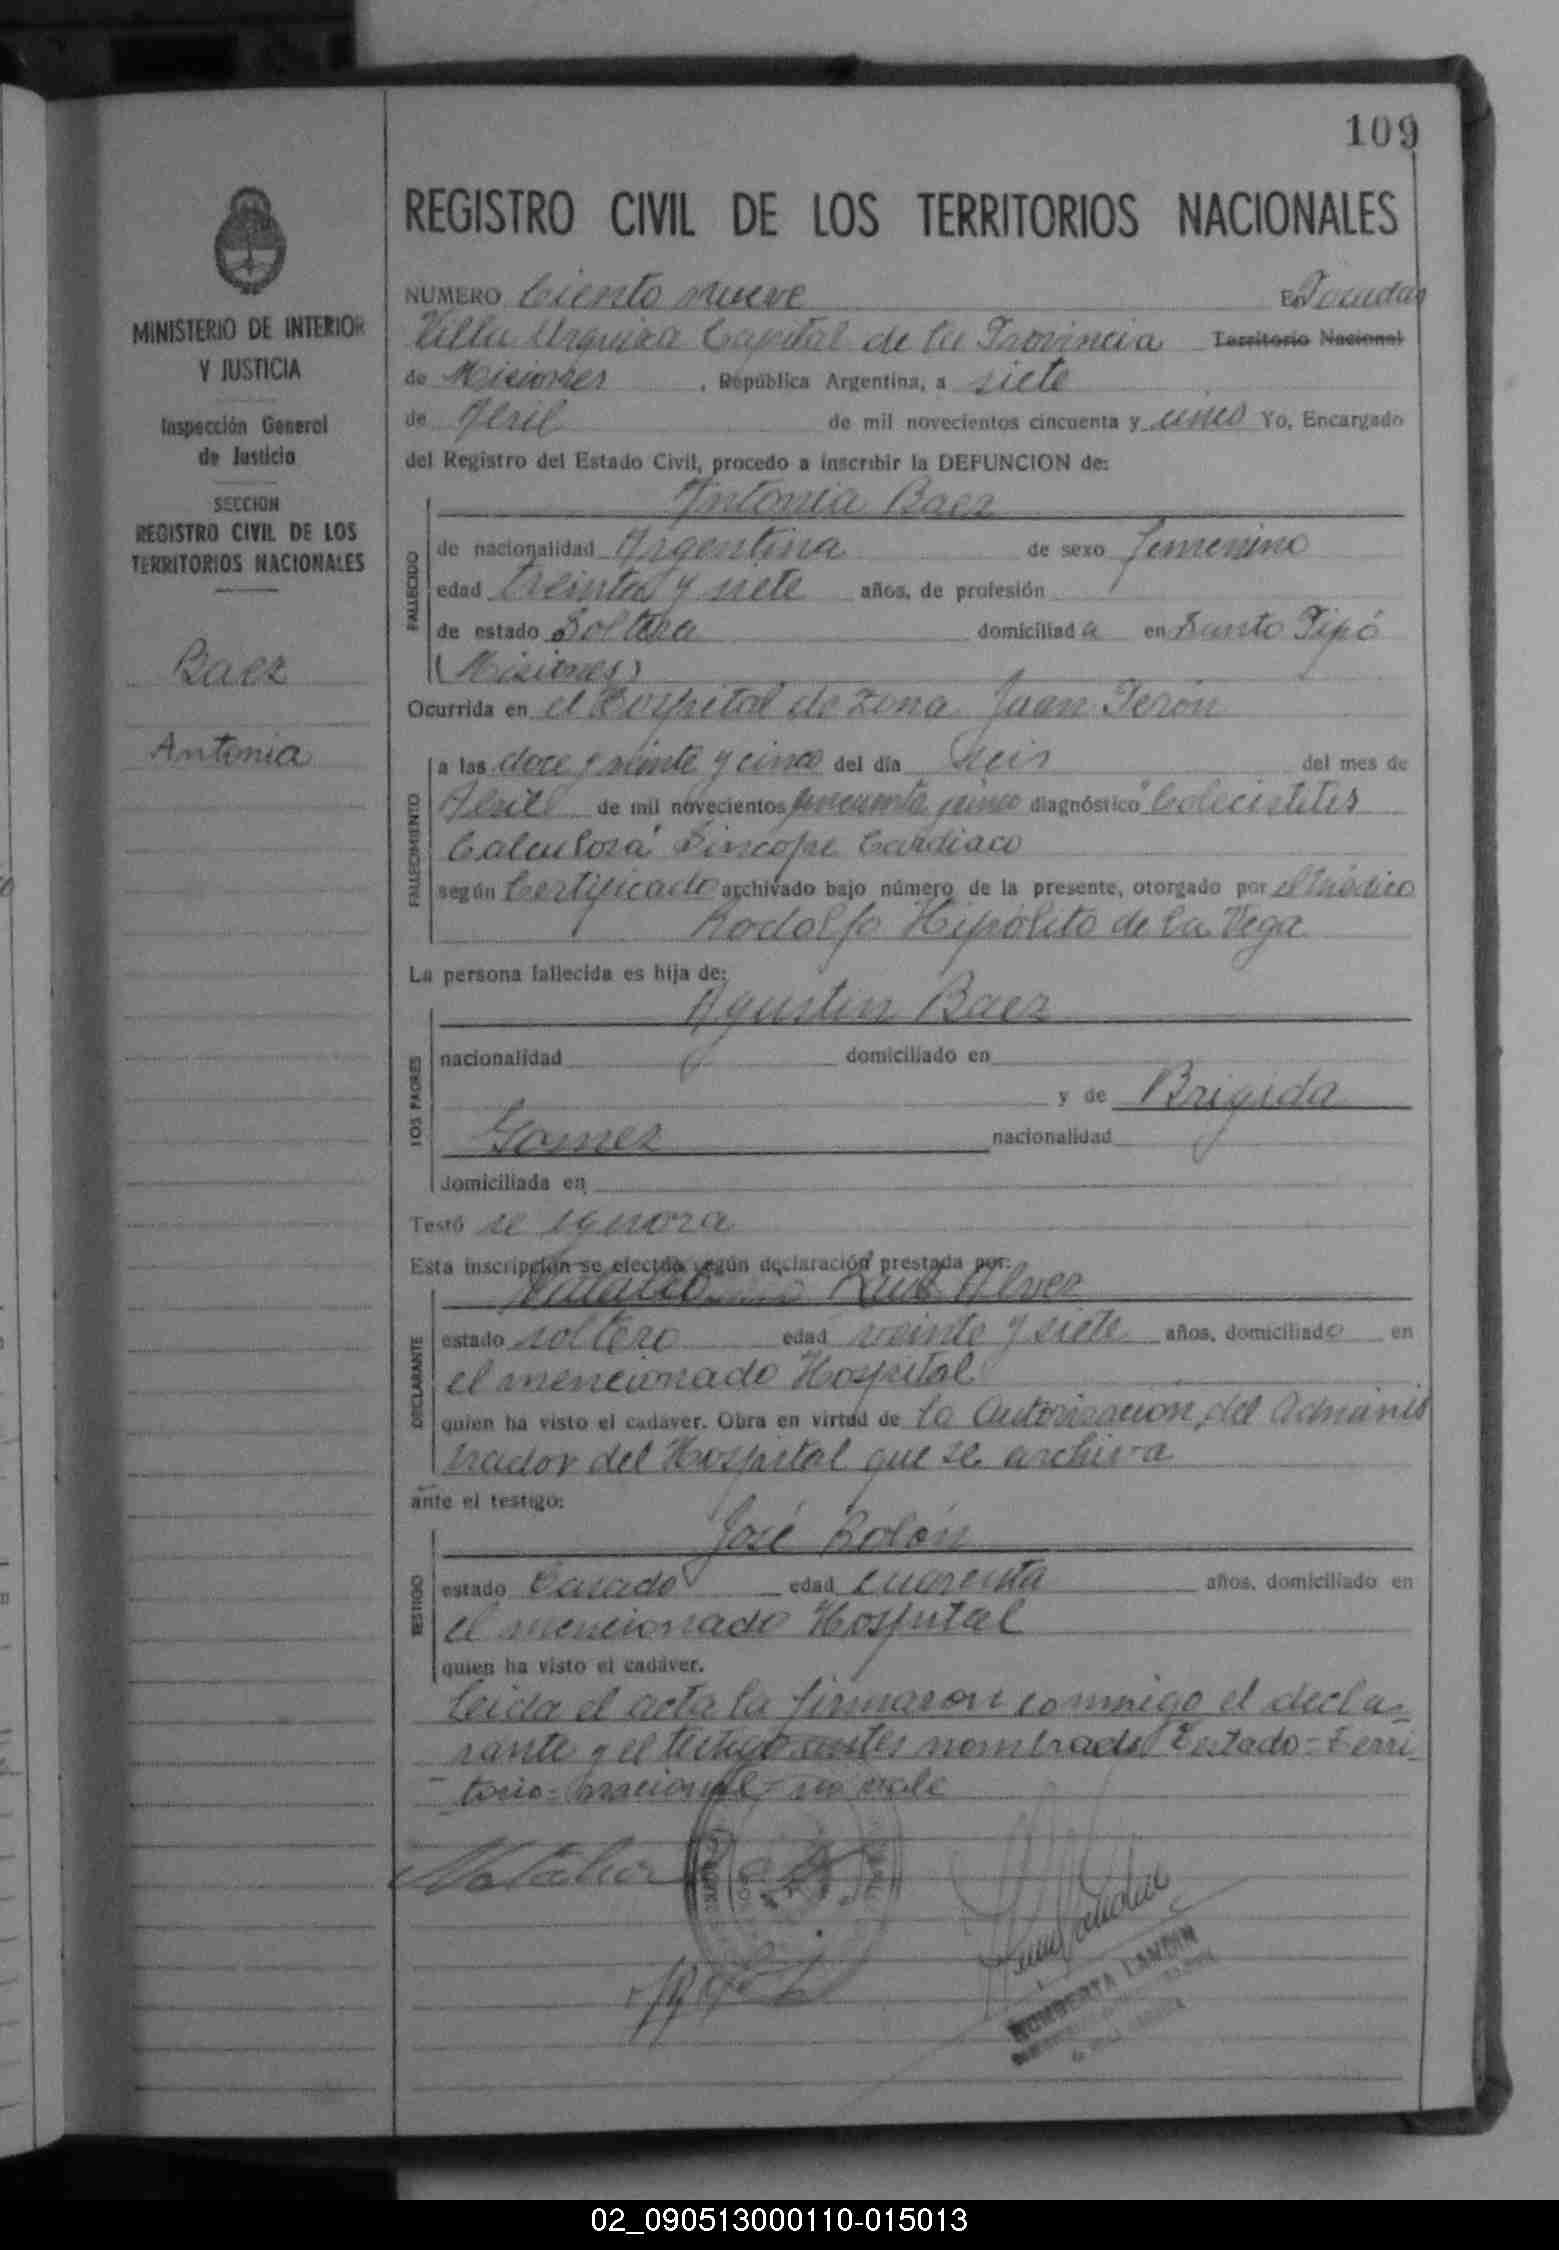 109
REGISTRO CIVIL DE LOS TERRITORIOS NACIONALES
MINISTERIO DE INTERIOR
Y JUSTICIA
Inspección General
de Justicia
SECCION
REGISTRO CIVIL DE LOS
TERRITORIOS NACIONALES
Baez
Antonia
NUMERO Ciento nueve En Posadas
Villa Urquiza Capital de la Provincia Territorio Nacional
de Misiones, República Argentina, a siete
de Abril de mil novecientos cincuenta y cinco Yo, Encargado
del Registro del Estado Civil, procedo a inscribir la DEFUNCION de:
Antonia Baez
FALLECIDO
de nacionalidad Argentina de sexo femenino
edad treinta y siete años, de profesión
de estado Soltera domiciliada en Santo Pipó
(Misiones)
Ocurrida en el Hospital de zona Juan Perón
FALLECIMIENTO
a las doce y veinte y cinco del día seis del mes de
Abril de mil novecientos cincuenta y cinco diagnóstico "Colecistitis
Calculosa" Sincope Cardiaco
según Certificado archivado bajo número de la presente, otorgado por el Médico
Rodolfo Hipólito de la Vega
La persona fallecida es hija de:
LOS PADRES
Agustin Baez
nacionalidad domiciliado en
y de Brigida
Gomez nacionalidad
domiciliada en
Testó se ignora
Esta inscripción se efectúa según declaración prestada por:
DECLARANTE
Natalio Ruiz Alvez
estado soltero edad veinte y siete años, domiciliado en
el mencionado Hospital
quien ha visto el cadáver. Obra en virtud de la Autorizacion del Adminis
trador del Hospital que se archiva
ante el testigo:
TESTIGO
José Rolón
estado Casado edad cuarenta años, domiciliado en
el mencionado Hospital
quien ha visto el cadáver.
Leida el acta la firmaron conmigo el decla-
rante y el testigo antes nombrado Testado = Terri
torio = nacional = no vale
Natalio
NUMBERTA LANDIN
02_090513000110-015013